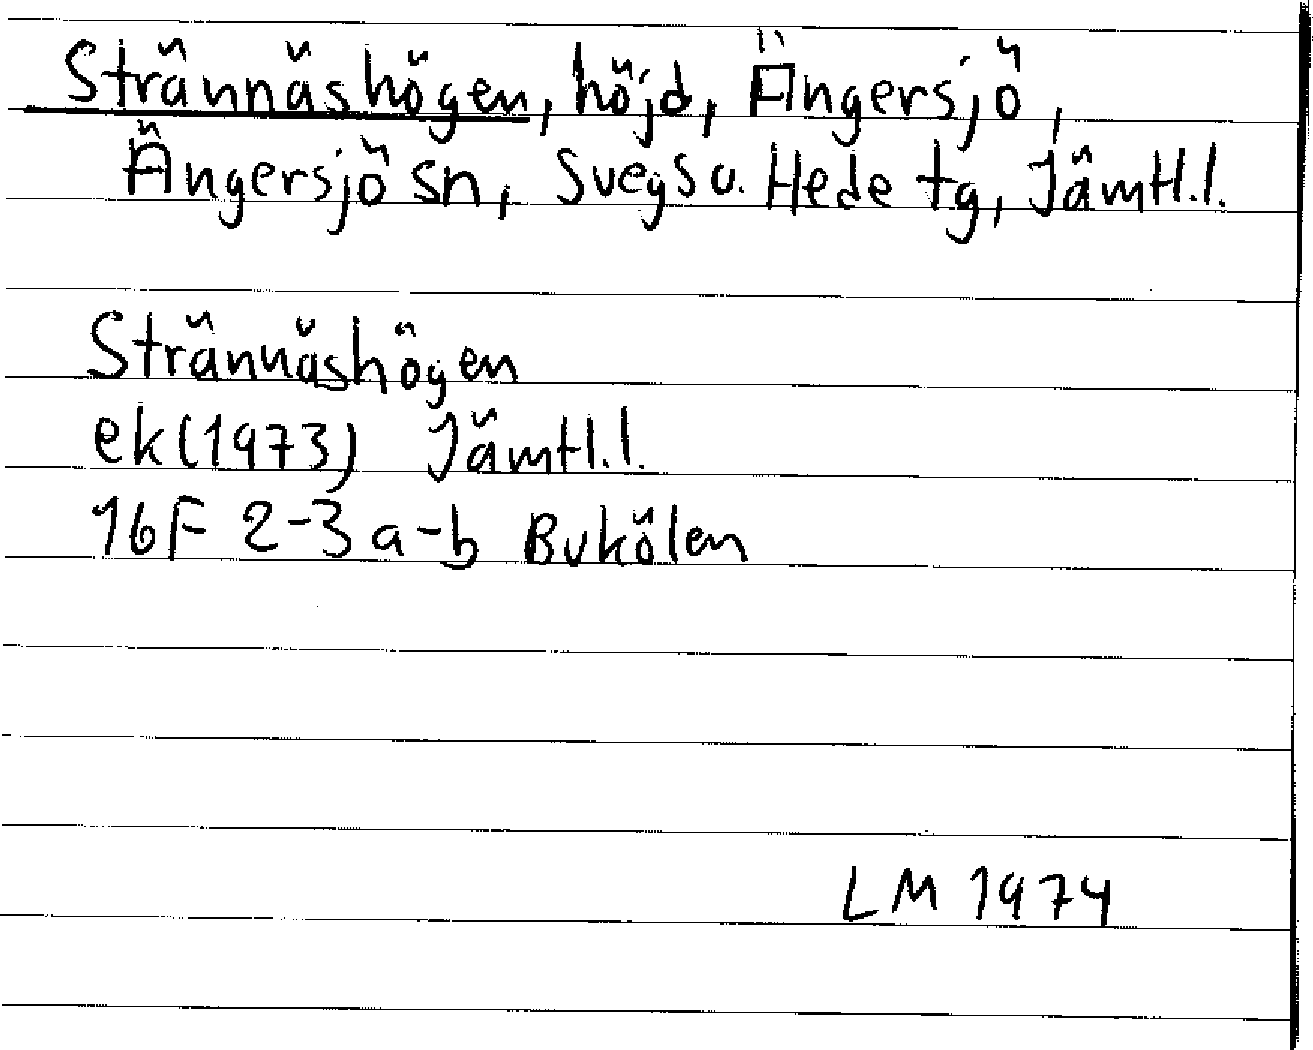 Strännäshögen, höjd, Ängersjö,
Ängersjö sn, Svegs o. Hede tg, Jämtl.l.
Strännäshögen
ek (1973) Jämtl.l.
16F 2-3 a-b Bukölen
LM 1974